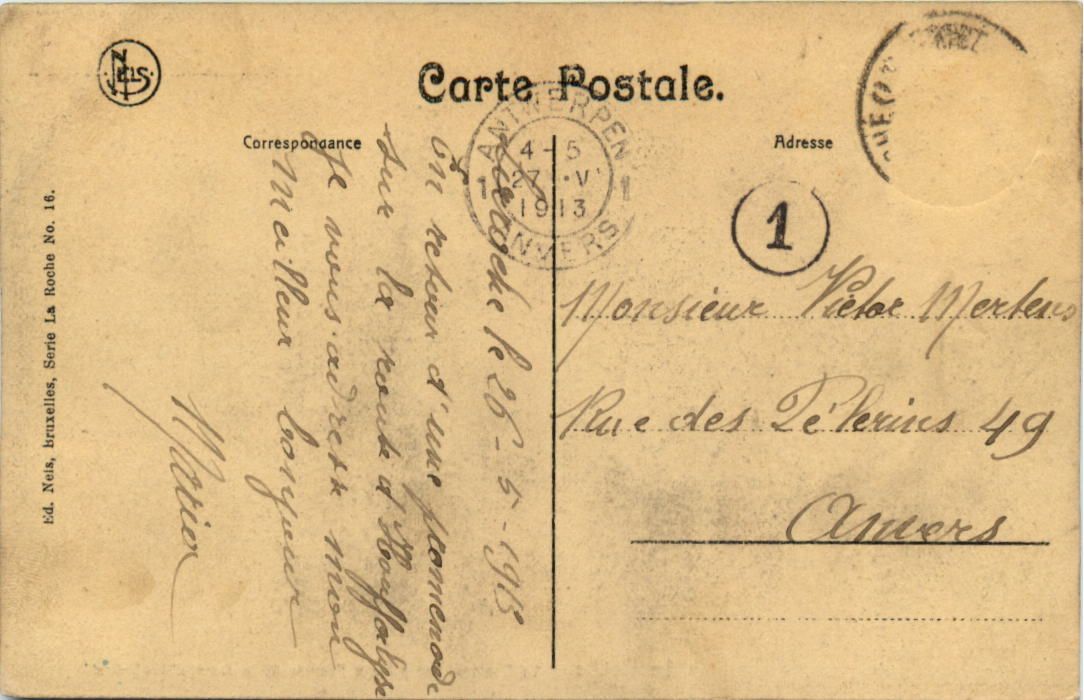 NELS
Carte Postale.
Correspondance
Adresse
ANTWERPEN
4-5
1 27 · V 1
1913
ANVERS
1
Laroche le 26-5-1913
En retour d'une pomenade
sur la route d'Houffalyse
Je vous adresse mon
meilleur bonjour
Monsieur Victor Mertens
Rue des Pélerins 49
Anvers
Ed. Nels, Bruxelles, Serie La Roche No. 16.